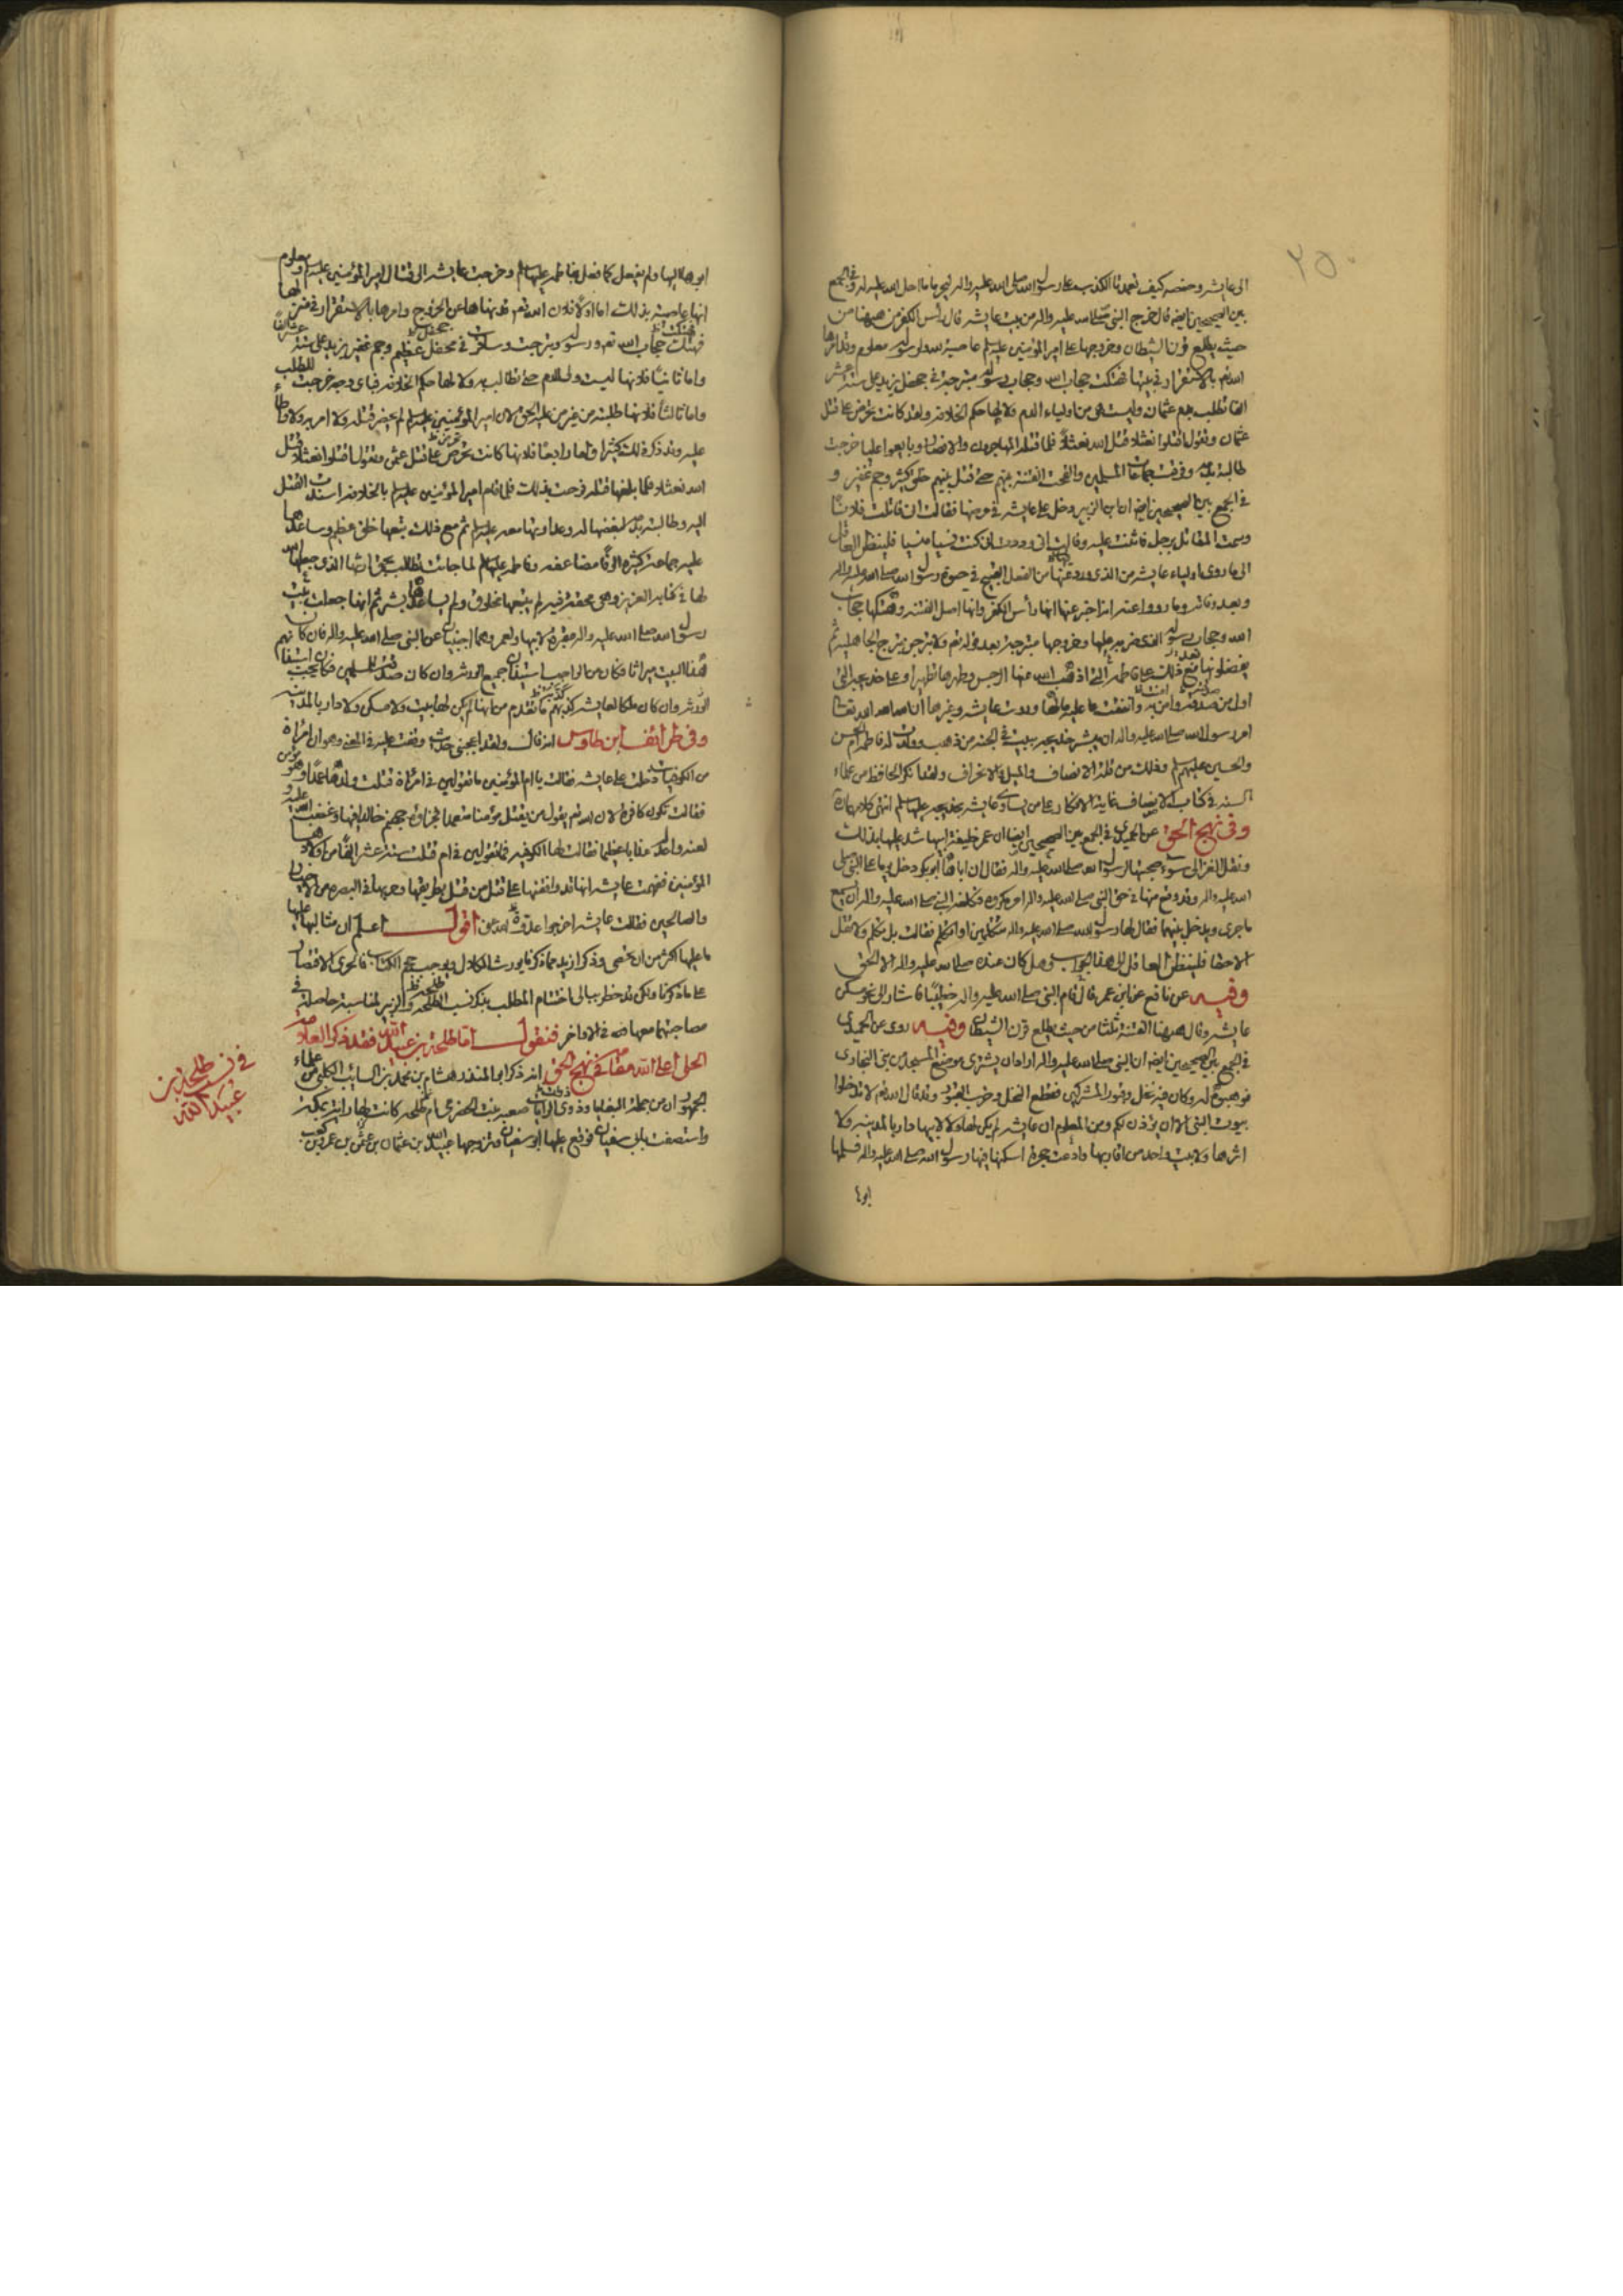 ٢٥٠
الى عايشه وحفصه كيف تعمدتا الكذب على رسول الله صلى الله عليه واله ليحرما ما احل الله عليه له وفي الجمع
بين الصحيحين ايضه قال خرج النبي صلى الله عليه واله من بيت عايشه قال رأس الكفر من ههنا من
حيث يطلع قرن الشيطان وخروجها على امير المؤمنين عليه السلم عاصية لله ولرسوله معلوم وقد امرها
الله تع بالاستقرار في بيتها فهتكت حجاب الله وحجاب رسوله متبرجة في جحفل يزيد على ستة عشر
الفا تطلب بدم عثمان وليست هي من اولياء الدم ولا لها حكم الخلافه ولقد كانت تحرض على قتل
عثمان وتقول اقتلوا نعثلا قتل الله نعثلا فلما قتله المهاجرون والانصار وبايعوا عليا خرجت
طالبة بدمه وفرقت جماعات المسلمين والقحت الفتنة بينهم حتى قتل بينهم خلق كثير وجم غفير و
في الجمع بين الصحيحين ايضه ان ابن الزبير دخل على عايشه في مرضها فقالت ان قاتلت فلانا
وسمت المقاتل برجل قاتلت عليه وقالت اني وددت اني كنت نسيا منسيا فلينظر العاقل
الى ما روى اولياء عايشه من الذي ورد عنها من الفعل القبيح في حيوة رسول الله صلى الله عليه واله
وبعد وفاته وما رووا عنه انه اخبر عنها انها رأس الكفر وانها اصل الفتنه وهتكها حجاب
الله وحجاب رسوله الذي ضربه عليها وخروجها متبرجة بعد قوله تع ولا تبرجن تبرج الجاهلية ثم
يفضلونها مع ذلك على فاطمه التي اذهب الله عنها الرجس وطهرها تطهيرا وعلى خديجه التي
اول من صدقت وامن به وانفقت عليه مالها وروت عايشه وغيرها ان الله تعالى
امر رسول الله صلى الله عليه واله ان يبشر خديجه ببيت في الجنه من ذهب وولدت له فاطمه ام الحسن
والحسين عليهم السلم وذلك من قلة الانصاف والميل والانحراف ولقد انكر الحافظ من علماء
السنه في كتاب الانصاف غاية الانكار على من يساوي عايشه بخديجه عليها السلم انتهى كلامه
وفي نهج الحق عن الحميدي في الجمع بين الصحيحين ايضا ان عمر خليفة ابيها شهد عليها بذلك
ونقل الغزالي سوء صحبتها لرسول الله صلى الله عليه واله فقال ان اباها ابو بكر دخل يوما على النبي صلى
الله عليه واله وقد وقع منها في حق النبي صلى الله عليه واله امر مكروه فكلفه النبي صلى الله عليه واله ان يسمع
ما جرى ويدخل بينهما فقال لها رسول الله صلى الله عليه واله تتكلمين او اتكلم فقالت بل تكلم ولا تقل
الا حقا فلينظر العاقل الى هذا الجواب وهل كان عنده صلى الله عليه واله الا الحق
وفيه عن نافع عن ابن عمر قال قام النبي صلى الله عليه واله خطيبا فاشار الى نحو مسكن
عايشه وقال ههنا الفتنة ثلثا من حيث يطلع قرن الشيطان وفيه روى عن الحميدي
في الجمع بين الصحيحين ايضه ان النبي صلى الله عليه واله اراد ان يشترى موضع المسجد من بني النجار
فوهبوه له وكان فيه نخل وقبور المشركين فقطع النخل وخرب القبور وقد قال الله تع لا تدخلوا
بيوت النبي الا ان يؤذن لكم ومن المعلوم ان عايشه لم يكن لها ولا لابيها دار بالمدينه ولا
اثرها ولا بيت واحد من اقاربها وادعت حجرة اسكنها فيها رسول الله صلى الله عليه واله فسلمها
ابوها
ابوها اليها ولم يفعل كما فعل بفاطمه عليها السلم وخرجت عايشه الى قتال امير المؤمنين عليه السلم ومعلوم
انها عاصية بذلك اما اولا فلان الله تع قد نهاها عن الخروج وامرها بالاستقرار في منزلها
فهتكت حجاب الله تع ورسوله وتبرجت وسافرت في محفل عظيم وجم غفير يزيد على ستة عشر الفا
واما ثانيا فلانها ليست ولي الدم حتى تطالب به ولا لها حكم الخلافه فباي وجه خرجت للطلب
واما ثالثا فلانها طلبته من غير من عليه الحق لان امير المؤمنين عليه السلم لم يحضر قتله ولا امر به ولا واطأ
عليه وقد ذكر ذلك كثيرا واما رابعا فلانها كانت تحرض على قتل عثمان وتقول اقتلوا نعثلا قتل
الله نعثلا فلما بلغها قتله فرحت بذلك فلما قام امير المؤمنين عليه السلم بالخلافه اسندت القتل
اليه وطالبته بدمه لبغضها له وعداوتها معه عليه السلم ثم مع ذلك يتبعها خلق عظيم وساعدها
عليه جماعة كثيرة الوفا مضاعفه وفاطمه عليها السلم لما جائت تطالب بحق ارثها الذي جعله الله
لها في كتابه العزيز وهي محقة فيه لم يتبعها مخلوق ولم يساعدها بشر ثم انها جعلت بيت
رسول الله صلى الله عليه واله مقبرة لابيها ولعمر وهما اجنبيان عن النبي صلى الله عليه واله فان كان
هذا البيت ميراثا فكان من الواجب استيذان جميع الورثه وان كان صدقة للمسلمين فكان يجب استيذان
وان كان ملكا لعايشه كذبهم ما تقدم من انها لم يكن لها بيت ولا مسكن ولا دار بالمدينه
وفي طرائف ابن طاوس انه قال ولقد اعجبني حديث وقفت عليه في المعنى وهو ان امرأة
من الكوفيات دخلت على عايشه فقالت يا ام المؤمنين ما تقولين في امرأة قتلت ولدها عمدا وهو مؤمن
فقالت تكون كافرة لان الله تع يقول من يقتل مؤمنا متعمدا فجزاؤه جهنم خالدا فيها وغضب الله عليه و
لعنه واعد له عذابا عظيما فقالت لها الكوفيه فما تقولين في ام قتلت ستة عشر الفا من اولادها
المؤمنين ففهمت عايشه انها قد وافقتها على قتل من قتل بطريقها وحربها في البصره من الاخيار
والصالحين فقالت عايشه اخرجوا عدوة الله عني اقول اعلم ان مثالبها
عليها اكثر من ان يحصى وذكر ازيد مما ذكرنا يورث الملال ويوجب حجم الكتاب فالحرى الاقتصار
على ما ذكرنا ولكن قد خطر ببالي اختتام المطلب بذكر نسب الطلحه والزبير لمناسبة حاصلة في
مصاحبتهما معها في الاواخر فنقول اما طلحة بن عبيد الله فقد ذكر العلامه
الحلي اعلى الله مقامه في نهج الحق انه ذكر ابو المنذر هشام بن محمد بن السائب الكلبي من علماء
الجمهور ان من جملة البغايا وذوي الرايات صعبه بنت الحضرمي ام طلحه كانت لها راية بمكة
واستصفت بابي سفيان فوقع عليها ابو سفيان وتزوجها عبيد الله بن عثمان بن عمرو بن كعب
في نسب طلحة بن
عبيد الله